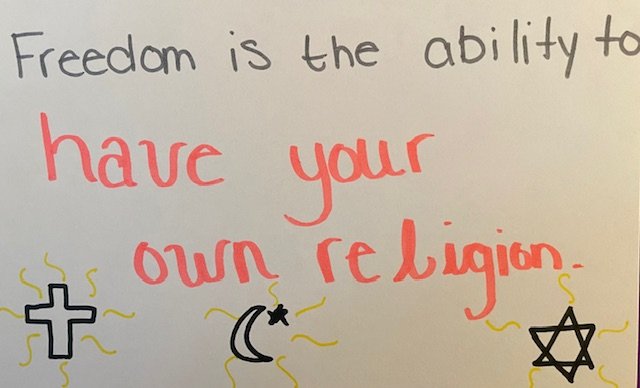 Freedom is the ability to
have your
own religion.